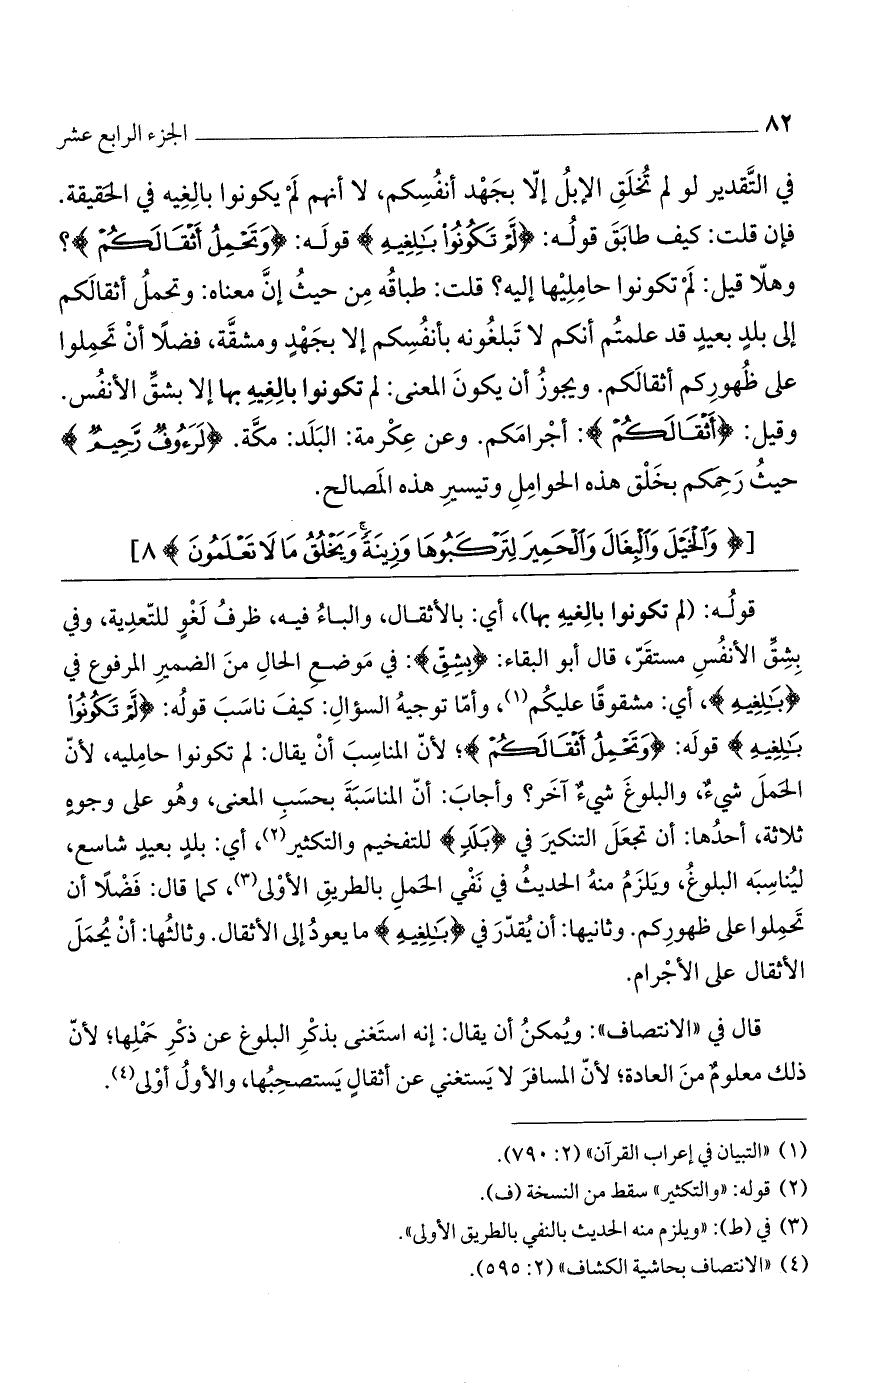 ٨٢ الجزء الرابع عشر
في التَّقدير لو لم تُخلَقِ الإبلُ إلّا بجَهْد أنفُسِكم، لا أنهم لَمْ يكونوا بالِغِيه في الحَقيقة.
فإن قلت: كيف طابَقَ قولُـه: ﴿لَّمْ تَكُونُوا۟ بَـٰلِغِيهِ﴾ قولَـه: ﴿وَتَحْمِلُ أَثْقَالَكُمْ﴾؟
وهلّا قيل: لَمْ تكونوا حامِلِيْها إليه؟ قلت: طباقُه مِن حيثُ إنَّ معناه: وتحملُ أثقالَكم
إلى بلدٍ بعيدٍ قد علمتُم أنكم لا تَبلغُونه بأنفُسِكم إلا بجَهْدٍ ومشقَّة، فضلًا أنْ تَحمِلوا
على ظُهورِكم أثقالَكم. ويجوزُ أن يكونَ المعنى: لم تكونوا بالِغِيهِ بها إلا بشقِّ الأنفُس.
وقيل: ﴿أَثْقَالَكُمْ﴾: أجْرامَكم. وعن عِكْرمة: البَلَد: مكَّة. ﴿لَرَءُوفٌ رَّحِيمٌ﴾
حيثُ رَحِمَكم بخَلْق هذه الحوامِلِ وتيسيرِ هذه المَصالح.
[﴿وَٱلْخَيْلَ وَٱلْبِغَالَ وَٱلْحَمِيرَ لِتَرْكَبُوهَا وَزِينَةً ۚ وَيَخْلُقُ مَا لَا تَعْلَمُونَ﴾ ٨]
قولُـه: (لم تكونوا بالِغيهِ بها)، أي: بالأثقـال، والبـاءُ فيـه، ظرفُ لَغْوٍ للتّعدِية، وفي
بِشِقِّ الأنفُسِ مستقَرّ، قال أبو البقاء: ﴿بِشِقِّ﴾: في مَوضـعِ الحالِ منَ الضميرِ المرفوع في
﴿بَـٰلِغِيهِ﴾، أي: مشقوقًا عليكُم(١)، وأمّا توجيهُ السؤالِ: كيفَ ناسَبَ قولُه: ﴿لَّمْ تَكُونُوا۟
بَـٰلِغِيهِ﴾ قولَه: ﴿وَتَحْمِلُ أَثْقَالَكُمْ﴾؛ لأنّ المناسِبَ أنْ يقال: لم تكونوا حامِليه، لأنّ
الحَملَ شيءٌ، والبلوغَ شيءٌ آخَر؟ وأجابَ: أنّ المناسَبَةَ بحسَبِ المعنى، وهُو على وجوهٍ
ثلاثة، أحدُها: أن تجعَلَ التنكيرَ في ﴿بَلَدٍ﴾ للتفخيم والتكثير(٢)، أي: بلدٍ بعيدٍ شاسع،
ليُناسِبَه البلوغُ، ويَلزَمُ منهُ الحديثُ في نَفْي الحَملِ بالطريقِ الأوْلى(٣)، كما قال: فَضْلًا أن
تَحمِلوا على ظهورِكم. وثانيها: أن يُقدّرَ في ﴿بَـٰلِغِيهِ﴾ ما يعودُ إلى الأثقال. وثالثُها: أنْ يُحمَلَ
الأثقال على الأجْرام.
قال في «الانتصاف»: ويُمكنُ أن يقال: إنه استَغنى بذكْرِ البلوغِ عن ذكْرِ حَمْلِها؛ لأنّ
ذلك معلومٌ منَ العادة؛ لأنّ المسافرَ لا يَستغني عن أثقالٍ يَستصحِبُها، والأولُ أوْلى(٤).
(١) «التبيان في إعراب القرآن» (٢: ٧٩٠).
(٢) قوله: «والتكثير» سقط من النسخة (ف).
(٣) في (ط): «ويلزم منه الحديث بالنفي بالطريق الأولى».
(٤) «الانتصاف بحاشية الكشاف» (٢: ٥٩٥).